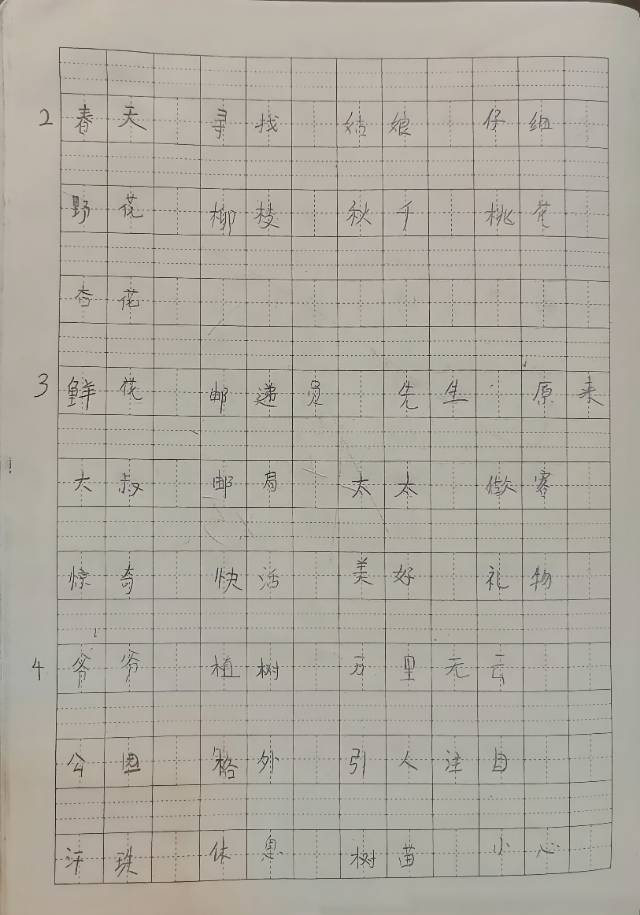 2 春天 寻找 姑娘 仔细
野花 柳枝 秋千 桃花
杏花
3 鲜花 邮递员 先生 原来
大叔 邮局 太太 做客
惊奇 快活 美好 礼物
4 爷爷 植树 万里无云
公园 格外 引人注目
汗珠 休息 树苗 小心